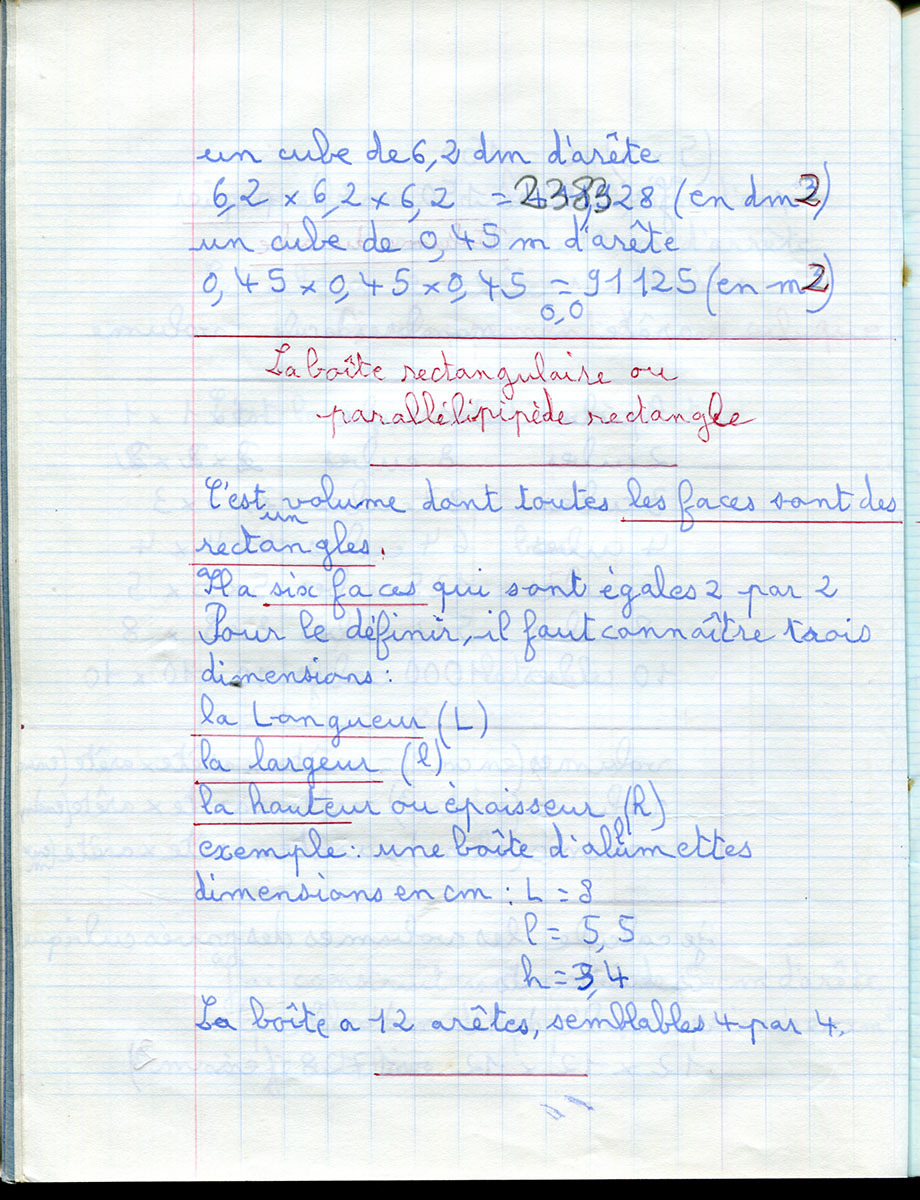 un cube de 6,2 dm d'arête
6,2 x 6,2 x 6,2 = 238328 (en dm3)
un cube de 0,45 m d'arête
0,45 x 0,45 x 0,45 = 0,091125 (en m3)
La boîte rectangulaire ou
parallélipipède rectangle
C'est un volume dont toutes les faces sont des
rectangles.
Il a six faces qui sont égales 2 par 2
Pour le définir, il faut connaître trois
dimensions :
la Longueur (L)
la largeur (l)
la hauteur ou épaisseur (h)
exemple : une boîte d'allumettes
dimensions en cm : L = 8
l = 5,5
h = 3,4
La boîte a 12 arêtes, semblables 4 par 4.